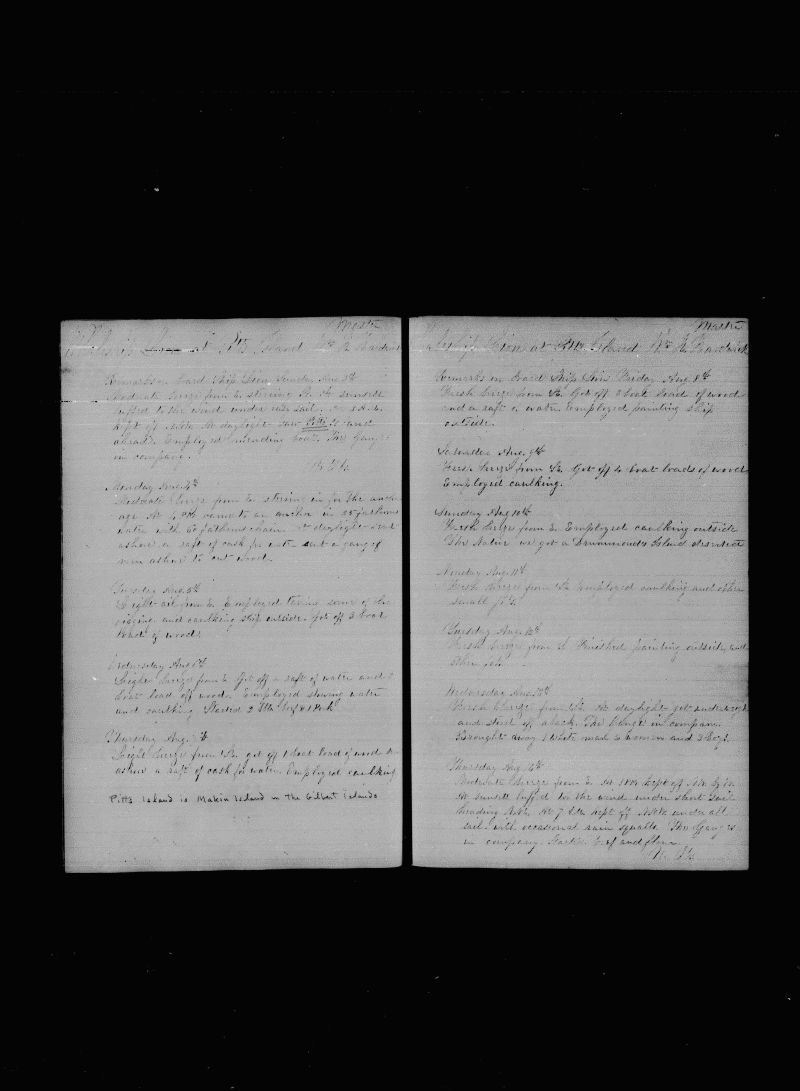 Master
Ship Lion at Pitts Island Wm R. Hardwick
Remarks on board Ship Lion Sunday Aug 3th
Moderate breeze from E steering At sunset
luffed to the wind under short sail. 
kept off At daylight saw Pitts Is and
ahead. Employed boat. The Ganges
in company.
Monday Aug 4th
Moderate breeze from E steering in for the anch
age At 4 PM came to an anchor in 15 fathoms
water with 60 fathoms chain At daylight sent
ashore a raft of cask for water sent a gang of
men ashore to cut wood.
Tuesday Aug 5th
Light air from E Employed some of the
rigging and caulking ship outside. Got off 3 boat
loads of wood.
Wednesday Aug 6th
Light breeze from E Got off a raft of water and
boat load off wood. Employed stowing water
and caulking Started 2 Bbls Beef & 1 Pork
Thursday Aug 7th
Light breeze from got off 1 boat load of wood
ashore a raft of cask for water. Employed caulking
Pitts Island is Makin Island in the Gilbert Islands
Master
Ship Lion at Pitts Island Wm R. Hardwick
Remarks on board Ship Lion Friday Aug 8th
Fresh breeze from Got off 3 boat load of wood
and a raft of water Employed painting Ship
outside.
Saturday Aug. 9th
Fresh breeze from Got off 4 boat loads of wood
Employed caulking.
Sunday Aug 10th
Fresh breeze from E Employed caulking outside
The Native we got a Drummonds Island deserted
Monday Aug. 11th
Fresh breeze from Employed caulking and other
small jobs.
Tuesday Aug. 12th
Fresh breeze from Finished painting outside and
other jobs
Wednesday Aug. 13th
Fresh breeze from At daylight got underweigh
and stood off a back. The Ganges in company.
Brought away 1 white man 2 women and 3 boys.
Thursday Aug. 14th
Moderate breeze from E at kept off by W.
At sunset luffed to the wind under short sail
heading At 7 kept off under all
sail. with occasional rain squalls The Ganges
in company. Started beef and flour.